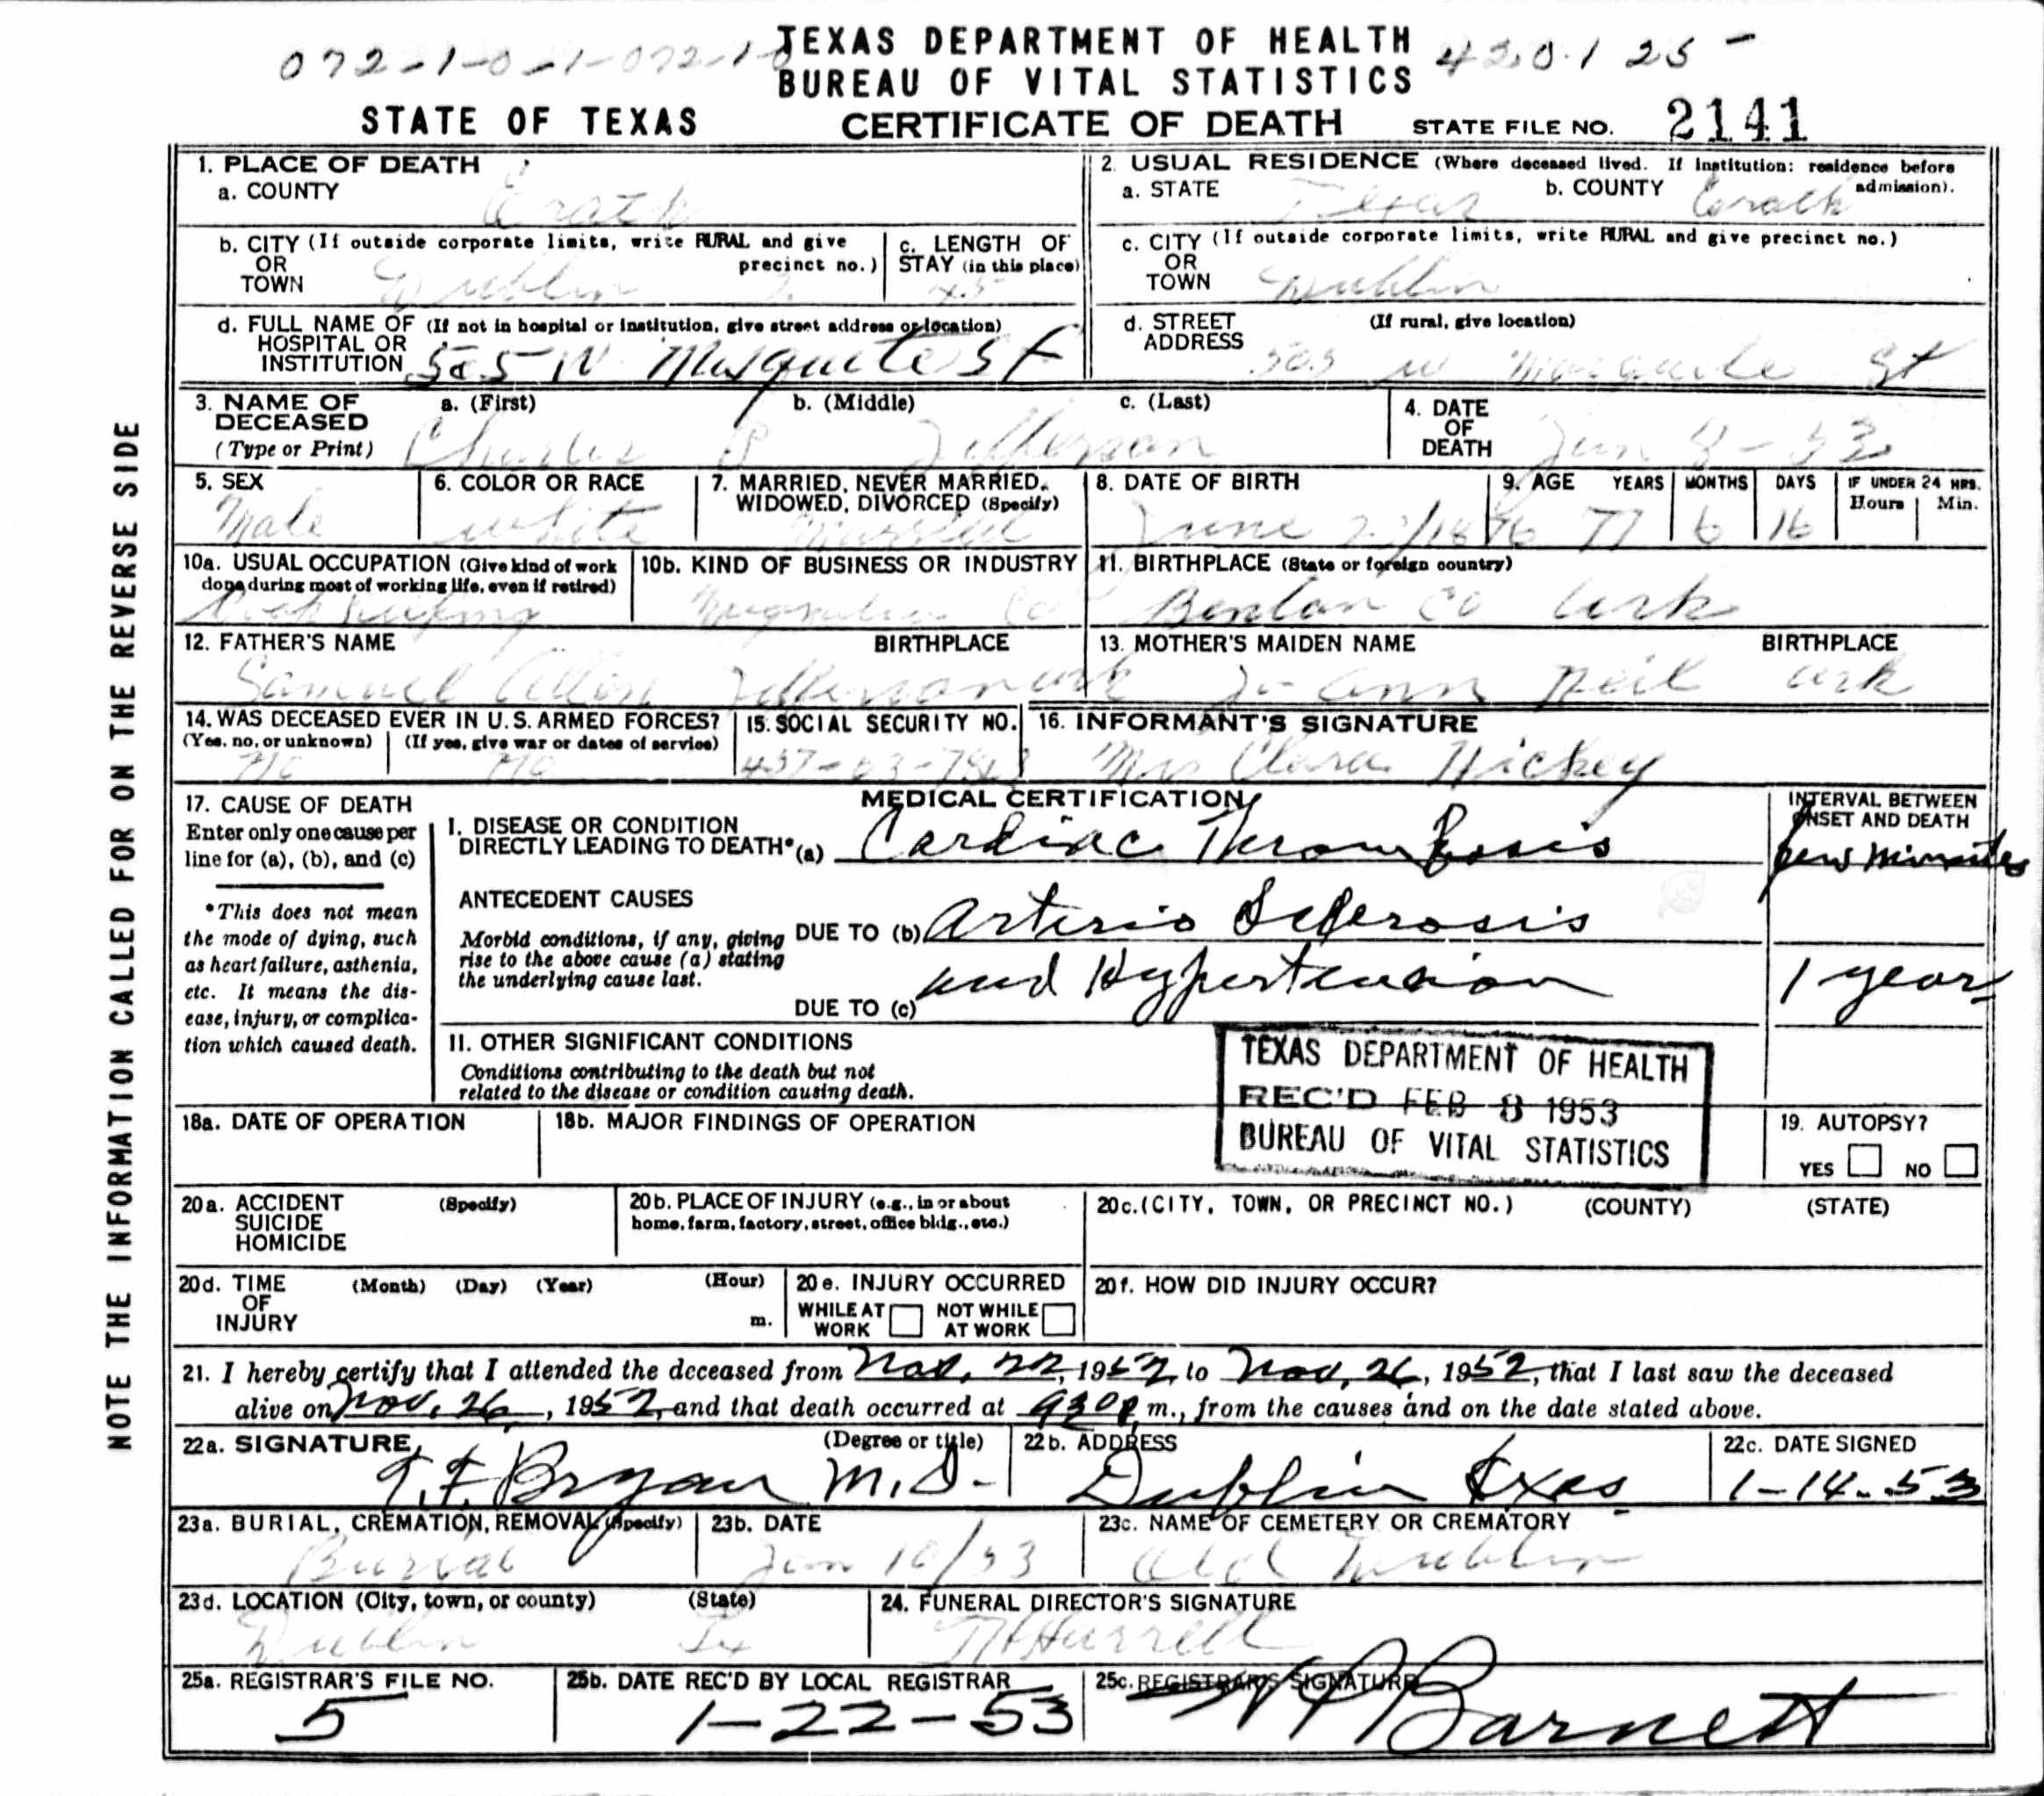 072-1-0-1-072-1-0
TEXAS DEPARTMENT OF HEALTH
420.1 25 -
BUREAU OF VITAL STATISTICS
STATE OF TEXAS
CERTIFICATE OF DEATH
STATE FILE NO. 2141
NOTE THE INFORMATION CALLED FOR ON THE REVERSE SIDE
1. PLACE OF DEATH
a. COUNTY Erath
2. USUAL RESIDENCE (Where deceased lived. If institution: residence before admission).
a. STATE Texas b. COUNTY Erath
b. CITY (If outside corporate limits, write RURAL and give precinct no.)
OR TOWN Dublin 2
c. LENGTH OF STAY (in this place) 45
c. CITY (If outside corporate limits, write RURAL and give precinct no.)
OR TOWN Dublin
d. FULL NAME OF (If not in hospital or institution, give street address or location)
HOSPITAL OR INSTITUTION 505 W Mesquite St
d. STREET ADDRESS (If rural, give location)
505 W Mesquite St
3. NAME OF DECEASED (Type or Print)
a. (First) b. (Middle) c. (Last)
Charles B Jefferson
4. DATE OF DEATH Jan 8-53
5. SEX
Male
6. COLOR OR RACE
White
7. MARRIED, NEVER MARRIED, WIDOWED, DIVORCED (Specify)
Married
8. DATE OF BIRTH
June /1876
9. AGE YEARS MONTHS DAYS IF UNDER 24 HRS. Hours Min.
77 6 16
10a. USUAL OCCUPATION (Give kind of work done during most of working life, even if retired)
10b. KIND OF BUSINESS OR INDUSTRY
Magnolia Co
11. BIRTHPLACE (State or foreign country)
Benton Co Ark
12. FATHER'S NAME BIRTHPLACE
Samuel Allen Jefferson Ark
13. MOTHER'S MAIDEN NAME BIRTHPLACE
Jo Ann Neil Ark
14. WAS DECEASED EVER IN U.S. ARMED FORCES?
(Yes, no, or unknown) (If yes, give war or dates of service)
No No
15. SOCIAL SECURITY NO.
457-03-
16. INFORMANT'S SIGNATURE
Mrs Clara Hickey
17. CAUSE OF DEATH
Enter only one cause per line for (a), (b), and (c)
*This does not mean the mode of dying, such as heart failure, asthenia, etc. It means the disease, injury, or complication which caused death.
MEDICAL CERTIFICATION
INTERVAL BETWEEN ONSET AND DEATH
I. DISEASE OR CONDITION DIRECTLY LEADING TO DEATH* (a) Cardiac Thrombosis
few minutes
ANTECEDENT CAUSES
Morbid conditions, if any, giving rise to the above cause (a) stating the underlying cause last.
DUE TO (b) Arterio Sclerosis
DUE TO (c) and Hypertension
1 year
II. OTHER SIGNIFICANT CONDITIONS
Conditions contributing to the death but not related to the disease or condition causing death.
TEXAS DEPARTMENT OF HEALTH
REC'D FEB 8 1953
BUREAU OF VITAL STATISTICS
18a. DATE OF OPERATION
18b. MAJOR FINDINGS OF OPERATION
19. AUTOPSY?
YES NO
20a. ACCIDENT SUICIDE HOMICIDE (Specify)
20b. PLACE OF INJURY (e.g., in or about home, farm, factory, street, office bldg., etc.)
20c. (CITY, TOWN, OR PRECINCT NO.) (COUNTY) (STATE)
20d. TIME OF INJURY (Month) (Day) (Year) (Hour) m.
20e. INJURY OCCURRED
WHILE AT WORK NOT WHILE AT WORK
20f. HOW DID INJURY OCCUR?
21. I hereby certify that I attended the deceased from Nov. 22, 1952, to Nov. 26, 1952, that I last saw the deceased
alive on Nov. 26, 1952, and that death occurred at 930 P m., from the causes and on the date stated above.
22a. SIGNATURE (Degree or title)
T.F. Bryan M.D-
22b. ADDRESS
Dublin Texas
22c. DATE SIGNED
1-14-53
23a. BURIAL, CREMATION, REMOVAL (Specify)
Burial
23b. DATE
Jan 10/53
23c. NAME OF CEMETERY OR CREMATORY
Old Dublin
23d. LOCATION (City, town, or county) (State)
Dublin Tx
24. FUNERAL DIRECTOR'S SIGNATURE
Harrell
25a. REGISTRAR'S FILE NO.
5
25b. DATE REC'D BY LOCAL REGISTRAR
1-22-53
25c. REGISTRAR'S SIGNATURE
Barnett